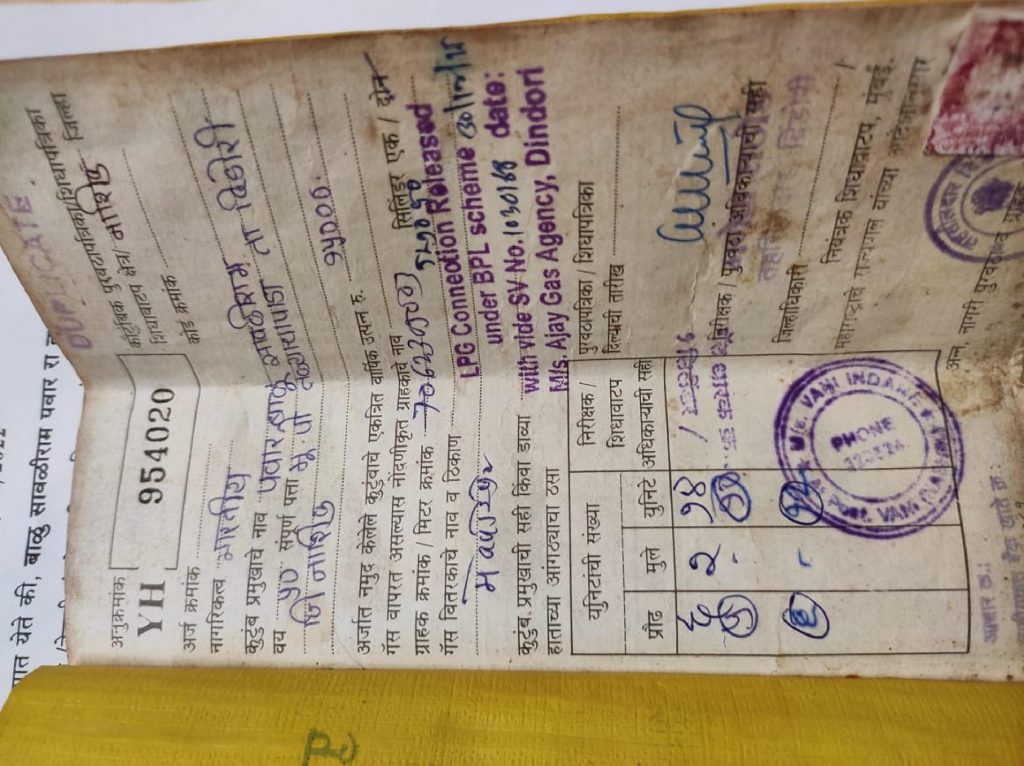 DUPLICATE
अनुक्रमांक
YH 954020
कौटुंबिक पुरवठापत्रिका/शिधापत्रिका
शिधावाटप क्षेत्र/ नाशिक जिल्हा
अर्ज क्रमांक
कोड क्रमांक
नागरिकत्व भारतीय
कुटुंब प्रमुखाचे नाव पवार बाळू सावळीराम
वय ५० संपूर्ण पत्ता मु. पो ता दिंडोरी
जि नाशिक
अर्जात नमुद केलेले कुटुंबाचे एकत्रित वार्षिक उत्पन्न रु. १५०००.
गॅस वापरत असल्यास नोंदणीकृत ग्राहकाचे नाव
ग्राहक क्रमांक / मिटर क्रमांक सिलिंडर एक / दोन
गॅस वितरकाचे नाव व ठिकाण
LPG Connection Released
under BPL scheme
with vide SV No. 1030168 date:
M/s. Ajay Gas Agency, Dindori
कुटुंब प्रमुखाची सही किंवा डाव्या
हाताच्या आंगठ्याचा ठसा
युनिटांची संख्या
निरीक्षक /
शिधावाटप
अधिकाऱ्याची सही
प्रौढ मुले युनिटे
६ २ १४
पुरवठापत्रिका / शिधापत्रिका
दिल्याची तारीख
निरीक्षक / पुरवठा अधिकाऱ्याची सही
जिल्हाधिकारी
नियंत्रक शिधावाटप, मुंबई.
महाराष्ट्राचे राज्यपाल यांच्या आदेशानुसार
अन्न, नागरी पुरवठा व ग्राहक
M/s. VANI INDANE
PHONE
At Post. VANI
तहसिलदार
आधार क्र.:
ात येते की, बाळु सावळीराम पवार रा